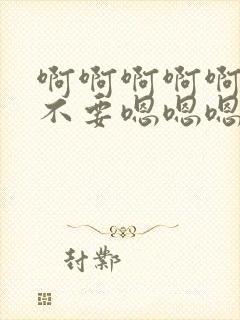 啊啊啊啊啊
不要嗯嗯嗯
封鄴